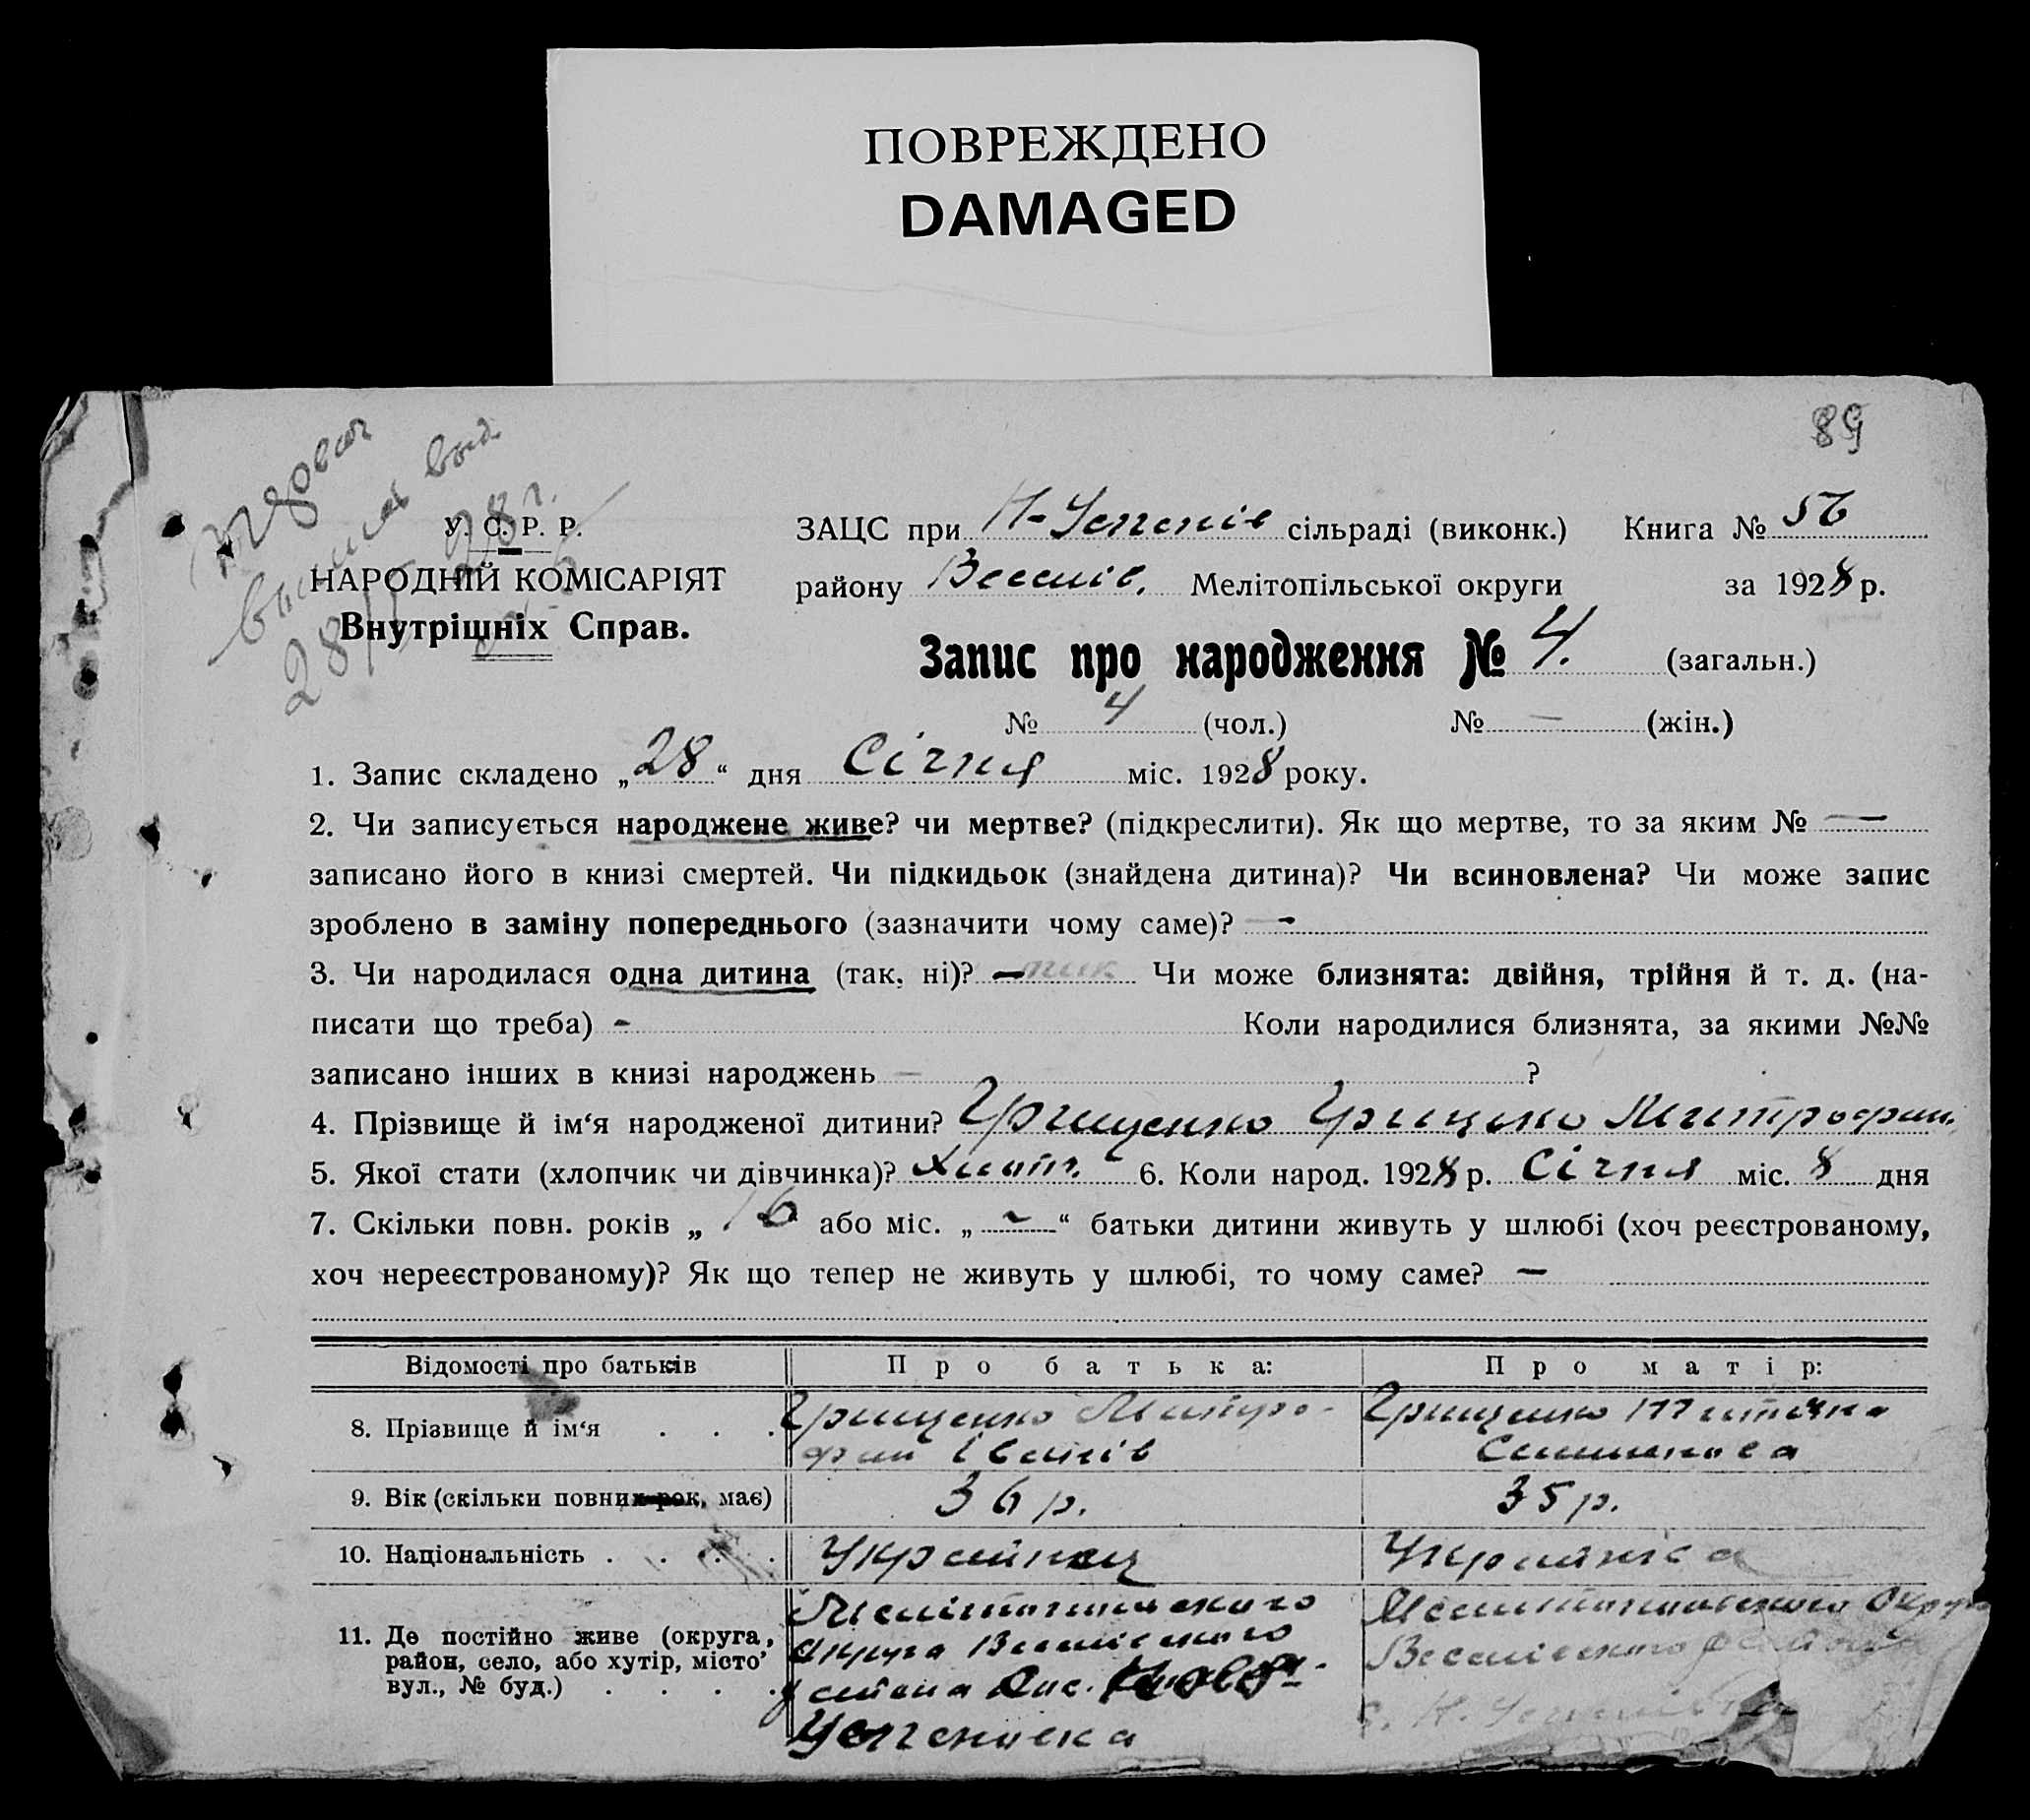 ПОВРЕЖДЕНО
DAMAGED
89
28 г.
У. С. Р. Р.
НАРОДНІЙ КОМІСАРІЯТ
Внутрішніх Справ.
ЗАЦС при Н-Успенів сільраді (виконк.) Книга №
району Веселів. Мелітопільської округи за 1928 р.
Запис про народження № 4. (загальн.)
№ 4 (чол.) № — (жін.)
1. Запис складено „28“ дня Січня міс. 1928 року.
2. Чи записується народжене живе? чи мертве? (підкреслити). Як що мертве, то за яким № —
записано його в книзі смертей. Чи підкидьок (знайдена дитина)? Чи всиновлена? Чи може запис
зроблено в заміну попереднього (зазначити чому саме)? -
3. Чи народилася одна дитина (так, ні)? — так Чи може близнята: двійня, трійня й т. д. (на-
писати що треба) - Коли народилися близнята, за якими №№
записано інших в книзі народжень — ?
4. Прізвище й ім‘я народженої дитини? Грищенко Грицько Митрофан.
5. Якої стати (хлопчик чи дівчинка)? хлопч. 6. Коли народ. 1928 р. Січня міс. 8 дня
7. Скільки повн. років „ 16 або міс. „ - “ батьки дитини живуть у шлюбі (хоч реєстрованому,
хоч нереєстрованому)? Як що тепер не живуть у шлюбі, то чому саме? —
Відомості про батьків Про батька: Про матір:
8. Прізвище й ім‘я . . . Грищенко Митро- Грищенко Титяна
фан Іванів Семенова
9. Вік (скільки повних рок, має) 36 р. 35 р.
10. Національність . . . . Українец Українка
11. Де постійно живе (округа, Мелітопільского Мелитопольского Округ
район, село, або хутір, місто’ Округа Веселівского Веселівского район
вул., № буд.) . . . . с. Н. Успенівка
Успеновка